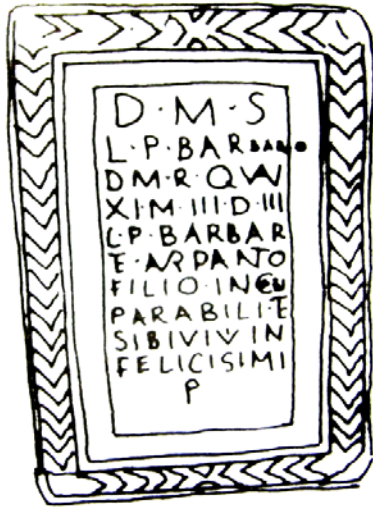 D · M · S
L · P · BARBARO
D M · R · Q V VI
XI · M · III · D · III
L · P · BARBAR
E · ARPANTO
FILIO · IN CO
PARABILI · E
SIBI VIVI IN
FELICISIMI
P